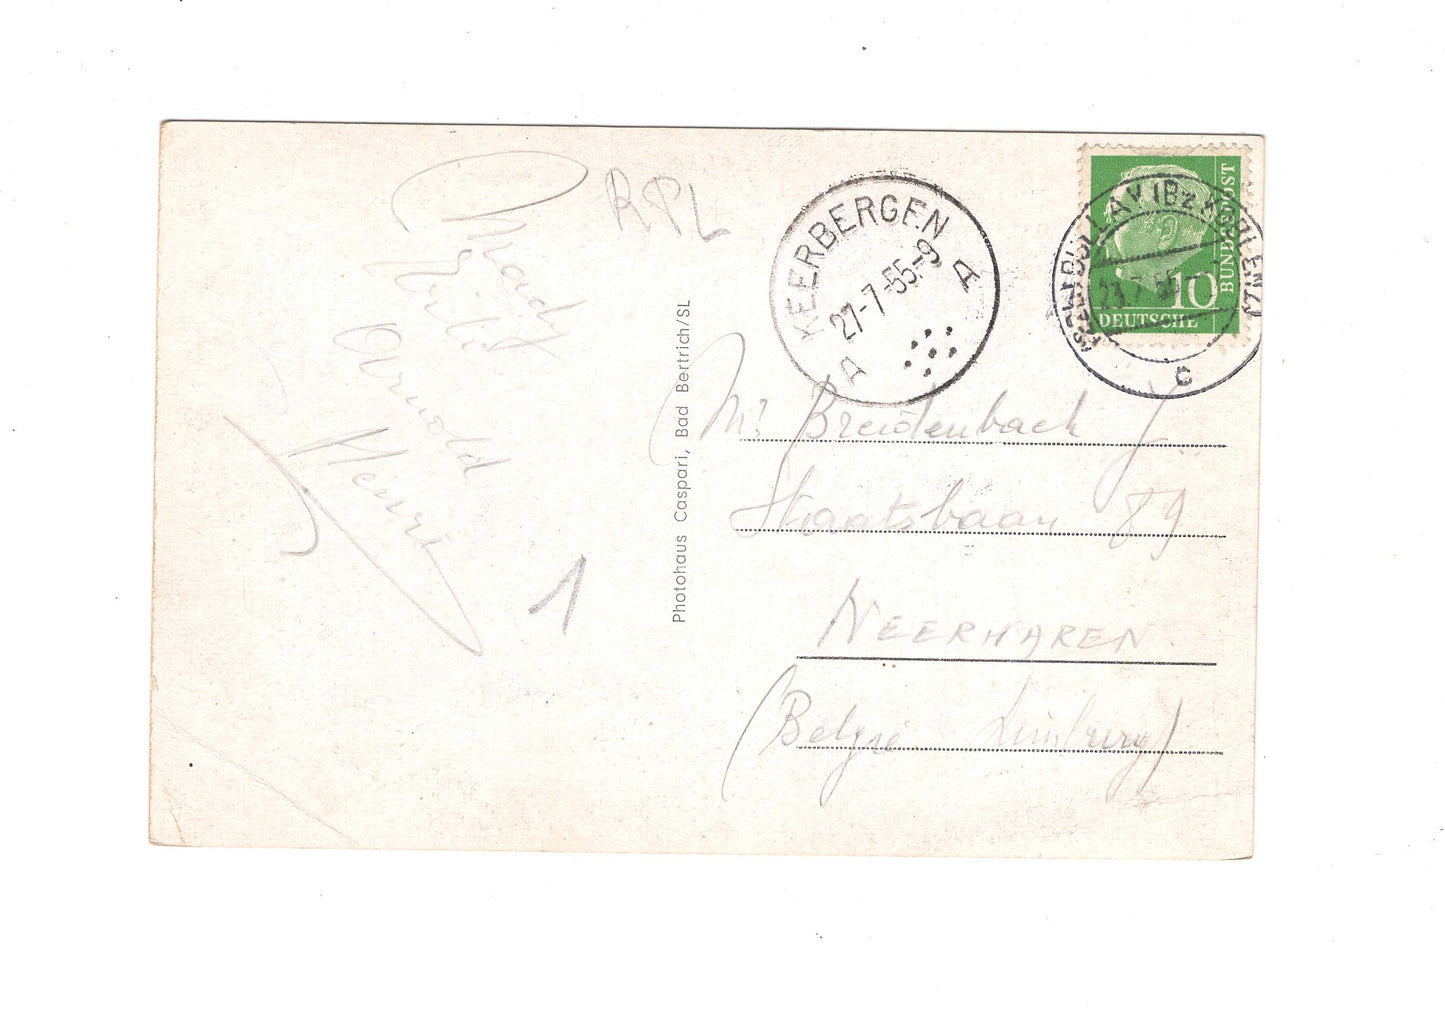 RPL
Arnold
Henri
1
Photohaus Caspari, Bad Bertrich/SL
KEERBERGEN
A A
27-7-55.-9
BULLAY (Bz KOBLENZ)
23.7.55
c
DEUTSCHE
BUNDESPOST
10
Mr Breidenbach J
Staatsbaan 89
NEERHAREN
(België Limburg)